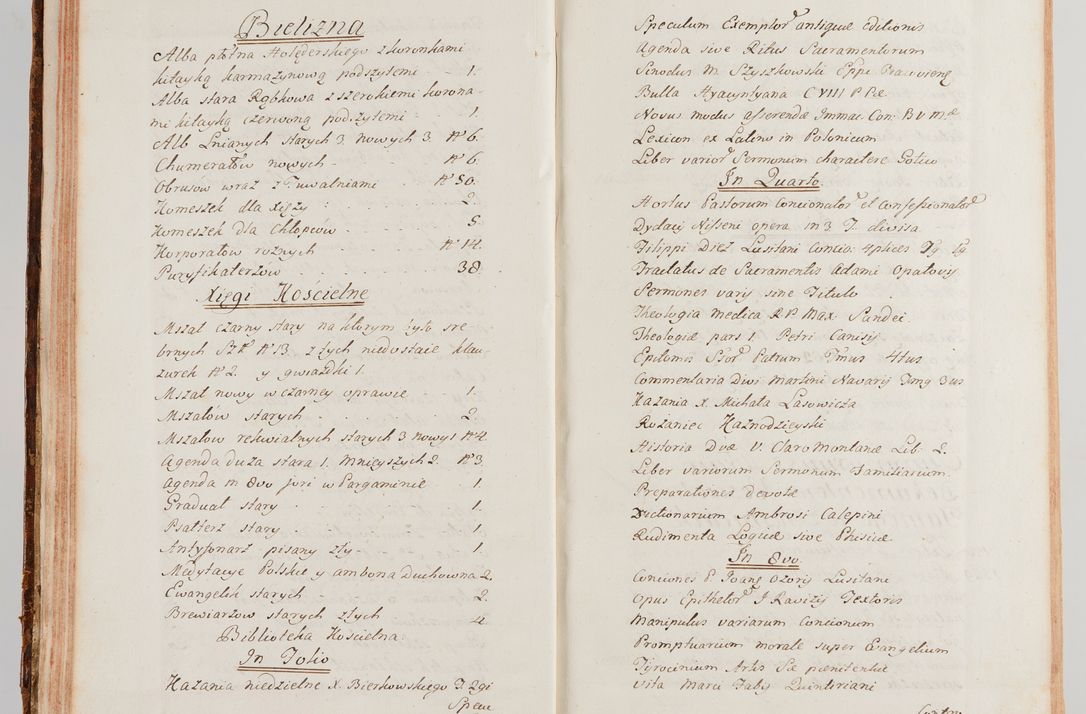 Bielizna
Alba płótna Holęderskiego z koronkami
kitayką karmazynową podszytemi - 1.
Alba stara Rąbkowa z szerokiemi korona-
mi kitayką czerwoną podszytemi - 1.
Alb Lnianych starych 3. nowych 3. Nº 6.
Chumerałow nowych - Nº 6.
Obrusow wraz z Tuwalniami Nº 50.
Komeszek dla Xięży 2.
Komeszek dla Chłopcow 5.
Korporałow rożnych Nº 14.
Puryfikaterzow 38.
Xięgi Kościelne
Mszał czarny stary na ktorym było sre
brnych Sztk Nº 13. z tych niedostaie klau-
zurek Nº 2. y gwiazdki 1.
Mszał nowy w czarney oprawie 1.
Mszałow starych 2.
Mszałow rekwialnych starych 3 nowy 1 Nº 4.
Agenda duża stara 1. Mnieyszych 2. Nº 3.
Agenda in 8vo w Pargaminie 1.
Graduał stary 1.
Psałterz stary 1.
Antyfonarz pisany zły 1.
Medytacye Polskie y ambona Duchowna 2.
Ewangelii starych 2.
Brewiarzow starych złych 4.
Biblioteka Kościelna.
In Folio
Kazania niedzielne X. Bierkowskiego T. 2gi
Specu
Speculum Exemplor antiquæ editionis
Agenda sive Ritus Sacramentorum
Sinodus M. Szyszkowski Eppi
Bulla Hyacyntyana C VIII P. P.
Novus modus asserendæ Immac. Con: B V M.
Lexicon ex Latino in Polonicum
Liber varior Sermonum charactere Gotico
In Quarto.
Hortus Pastorum Concionator et Confessionator
Dydaci Nisseni opera in 3 T. divisa
Filippi Diez Lusitani Concio: 4plices
Tractatus de Sacramentis Adami Opatovij
Sermones varij sine Titulo
Theologia Medica R P Max. Sandei.
Theologiæ pars 1. Petri Canisij
Epitomis Stor Patrum Tmus 4tus
Commentaria Divi Martini Navarij 3us
Kazania X. Michała Lasowicza
Rożaniec Kaznodzieyski
Historia Divæ V. Claro Montanæ Lib. 2.
Liber variorum Sermonum Familiarium.
Preparationes devotæ
Dictionarium Ambrosi Calepini
Rudimenta Logicæ sive Phisicæ.
In 8vo.
Conciones P. Joang Ozorij Lusitani
Opus Epithetor J Ravizij Textoris
Manipulus variarum Concionum
Promptuarium morale super Evangelium
Tyrocinium Artis Sæ pœnitentiæ
Vita Marci Fabij Quintiriani